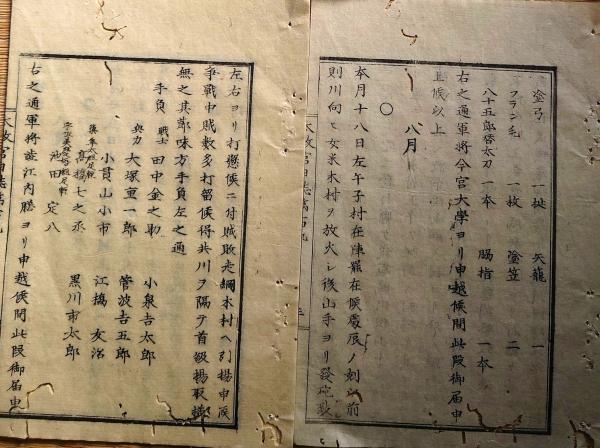 塗弓 一挺 矢籠 一
フランモ 一枚 塗笠 二
八十五郎替太刀 一本 脇指 一本
右之通軍将今宮大學ヨリ申越候間此段御届申
上候以上
八月
〇
本月十八日左午子村在陣罷在候處辰ノ刻以前
則川向ヒ女米木村ヲ放火シ後山手ヨリ發砲致
左右ヨリ打懸候ニ付賊敗走綱木村ヘ引揚申候
争戰中賊数多打留候得共川ヲ隔テ首級揚取
無之其節味方手負左之通
手負 戰士 田中金之助 小泉吉太郎
與力 大塚重一郎 管波吉五郎
小貫山小市 江橋友治
高橋七之丞 黒川市太郎
池田定八
右之通軍将 江内膳ヨリ申越候間此段御届申
太政官日誌